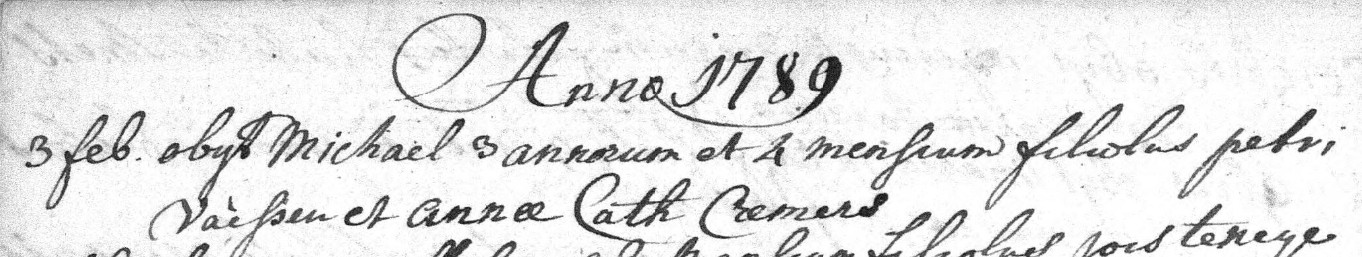 Anno 1789
3 feb. obyt Michael 3 annorum et 4 mensium filiolus petri
Vaessen et annæ Cath Cremers
filiolus jois